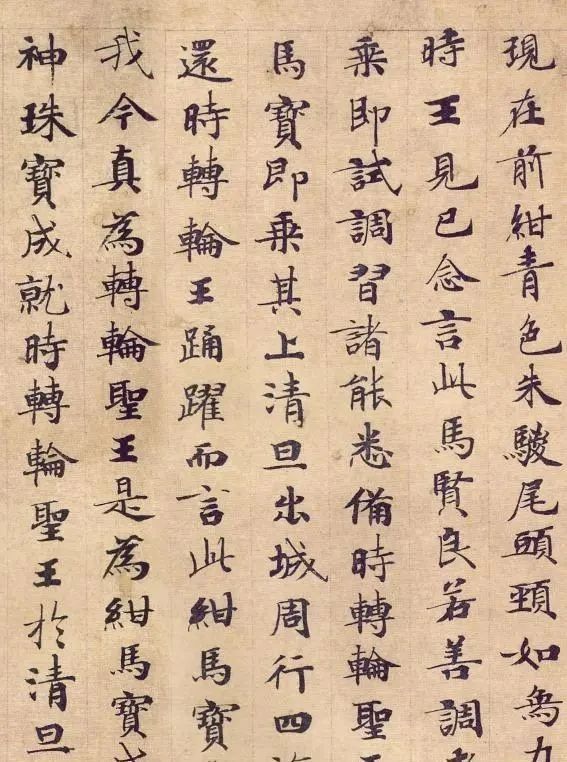 現在前紺青色朱髦尾頭頸如烏力
時王見已念言此馬賢良若善調者
乘即試調習諸能悉備時轉輪聖王
馬寶即乘其上清旦出城周行四海
還時轉輪王踊躍而言此紺馬寶
我今真為轉輪聖王是為紺馬寶成
神珠寶成就時轉輪聖王於清旦